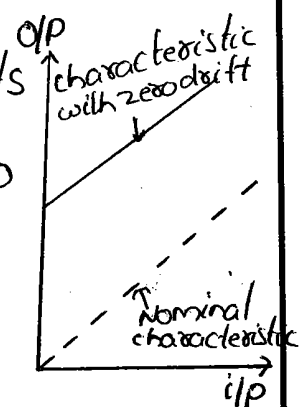 O/P
/s
characteristic
with zero drift
Nominal
characteristic
i/p